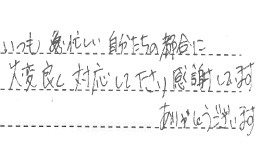 いつも 忙しい 自分たちの都合に
大変良く対応してださり感謝してます
ありがとうございます